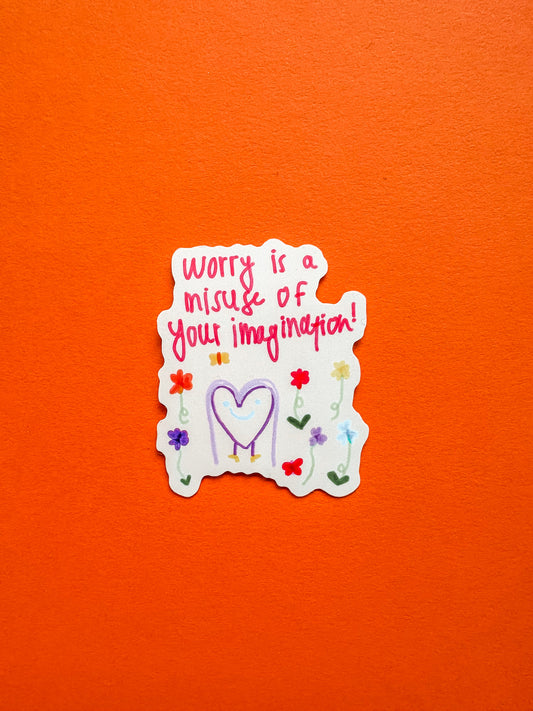 worry is a
misuse of
your imagination!